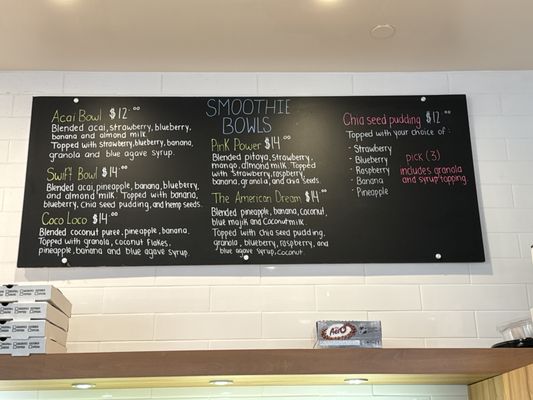 SMOOTHIE
BOWLS
Acai Bowl $12.00
Blended acai, strawberry, blueberry,
banana and almond milk.
Topped with strawberry, blueberry, banana,
granola and blue agave syrup.
Swift Bowl $14.00
Blended acai, pineapple, banana, blueberry,
and almond milk. Topped with banana,
blueberry, chia seed pudding, and hemp seeds.
Coco Loco $14.00
Blended coconut puree, pineapple, banana.
Topped with granola, coconut flakes,
pineapple, banana and blue agave syrup.
Pink Power $14.00
Blended pitaya, strawberry,
mango, almond milk. Topped
with strawberry, raspberry,
banana, granola, and chia seeds.
The American Dream $14.00
Blended pineapple, banana, coconut,
blue majik and Coconut milk.
Topped with strawberry,
granola, blueberry, raspberry, and
blue agave syrup, coconut.
Chia seed pudding $12.00
Topped with your choice of:
- Strawberry
- Blueberry
- Raspberry
- Banana
- Pineapple
pick (3)
includes granola
and syrup topping
Aero